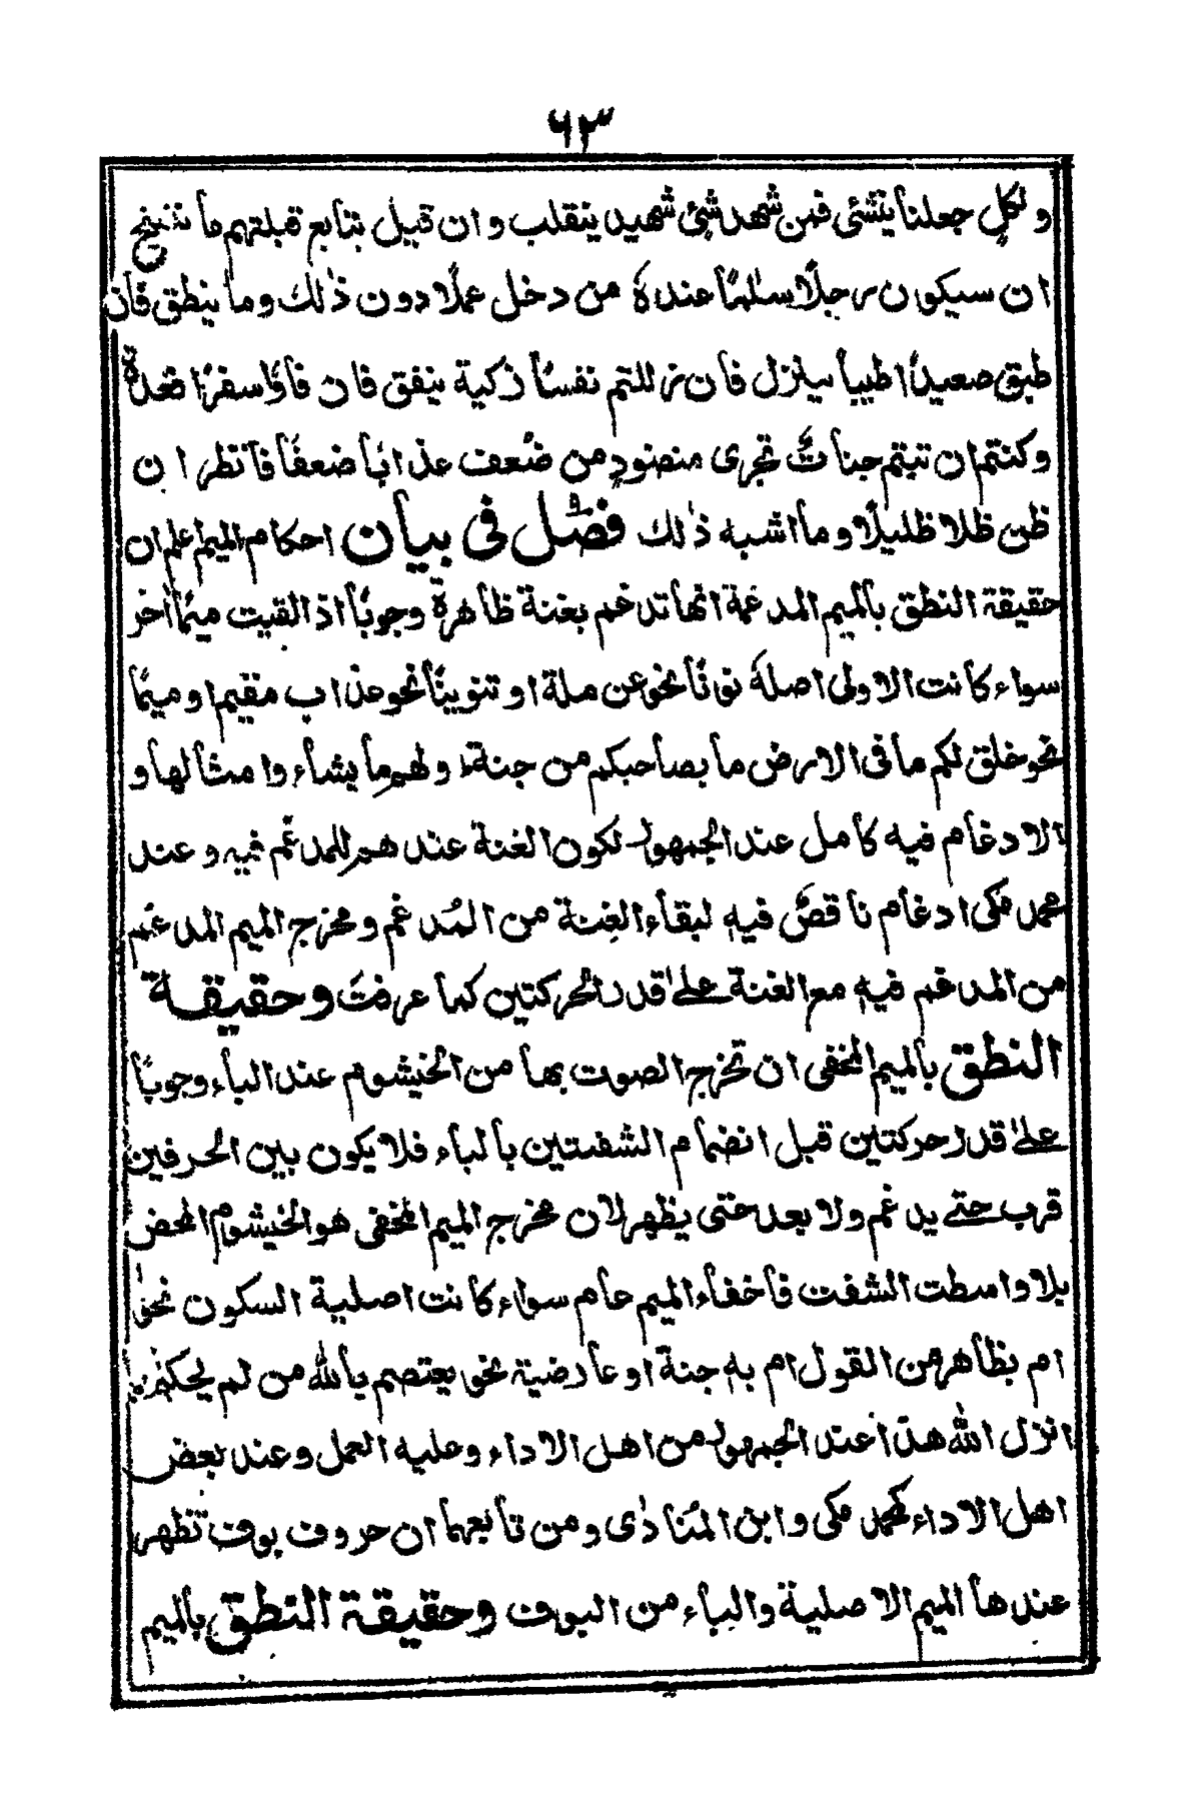 ٦٣
ولكلٍ جعلنا ينشئ فمن شهد شئٍ شهيد ينقلب وان قبيل بتابع قبلتهم ما ننسخ
ان سيكون رجلًا سلمًا عندهٗ من دخل عملًا دون ذٰلك وما ينطق فان
طبق صعيدًا طيبا سينزل فان زللتم نفسًا زكية ينفق فان فاؤا سفرًا قعدة
وكنتم ان تبتم جناتٌ تجرى منضودٍ من ضُعف عذابًا ضعفًا فانظر ان
ظن ظلا ظليلًا وما اشبه ذٰلك فصل فى بيان احكام الميم اعلم ان
حقيقة النطق بالميم المدغمة انها تدغم بغنة ظاهرة وجوبًا اذا لقيت ميمًا اخر
سواء كانت الاولى اصلهٗ نونًا نحو عن ملة او تنوينًا نحو عذاب مقيم او ميمًا
نحو خلق لكم ما فى الارض ما بصاحبكم من جنة ولهم ما يشاء وامثالها و
الادغام فيه كامل عند الجمهور لكون الغنة عندهم للمدغم فيه وعند
محمد مكى ادغام ناقصٌ فيه لبقاء الغنة من المُدغم ومخرج الميم المدغم
من المدغم فيه مع الغنة علىٰ قدر الحركتين كما عرفت وحقيقة
النطق بالميم المخفى ان تخرج الصوت بها من الخيشوم عند الباء وجوبًا
علىٰ قدر حركتين قبل انضمام الشفتين بالباء فلا يكون بين الحرفين
قرب حتے يدغم ولا بعد حتى يظهر لان مخرج الميم المخفى هو الخيشوم المحض
بلا واسطت الشفت فاخفاء الميم عام سواء كانت اصلية السكون نحو
ام بظاهر من القول ام به جنة او عارضية نحو يعتصم بالله من لم يحكم بما
انزل الله هذا عند الجمهور من اهل الاداء وعليه العمل وعند بعض
اهل الاداء كمحمد مكى وابن المُنادٰى ومن تابعهما ان حروف بوف تظهر
عندها الميم الاصلية والباء من البوف وحقيقة النطق بالميم